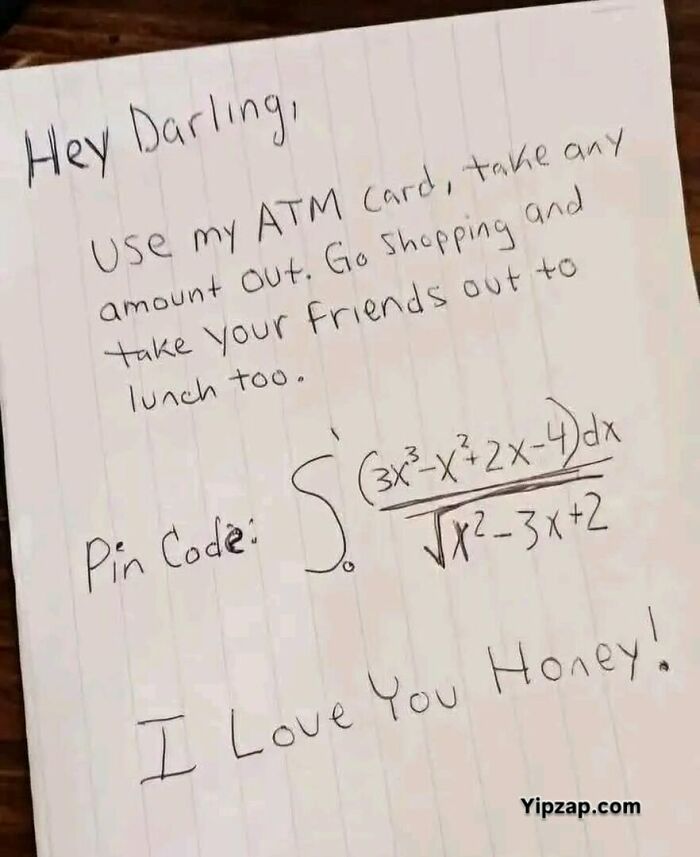 Hey Darling,
Use my ATM card, take any
amount out. Go shopping and
take your friends out to
lunch too.
Pin Code: ∫₀¹ (3x³-x²+2x-4)dx / √x²-3x+2
I Love You Honey!
Yipzap.com